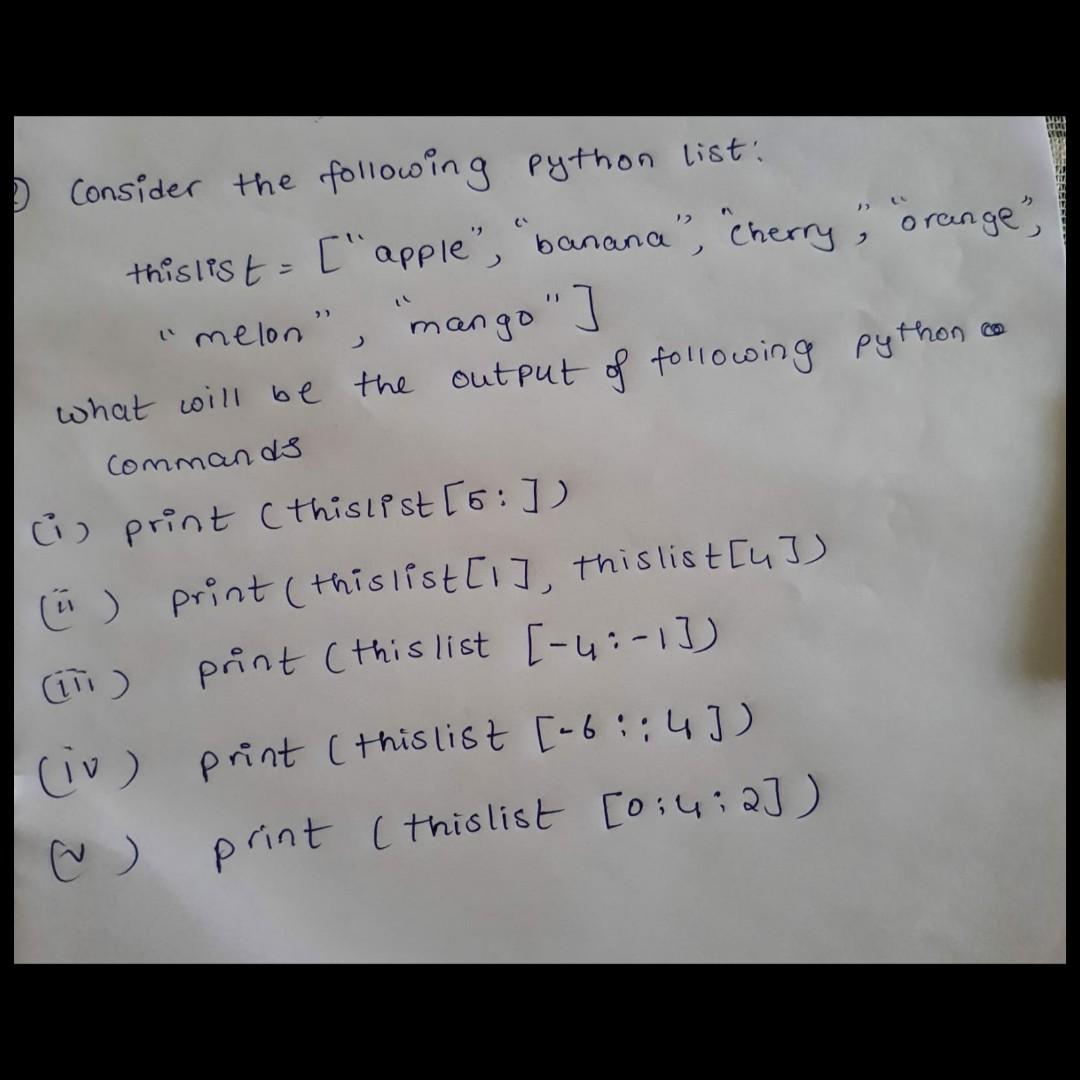 2) Consider the following python list:
thislist = ["apple", "banana", "cherry", "orange",
"melon", "mango"]
what will be the output of following python
commands
(i) print (thislist[5:])
(ii) print (thislist[1], thislist[4])
(iii) print (thislist [-4:-1])
(iv) print (thislist [-6::4])
(v) print (thislist [0:4:2])